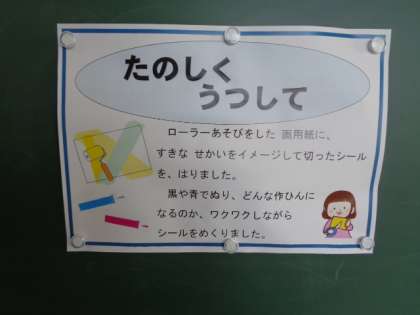 たのしく
うつして
ローラーあそびをした 画用紙に、
すきな せかいをイメージして切ったシール
を、はりました。
黒や青でぬり、どんな作ひんに
なるのか、ワクワクしながら
シールをめくりました。